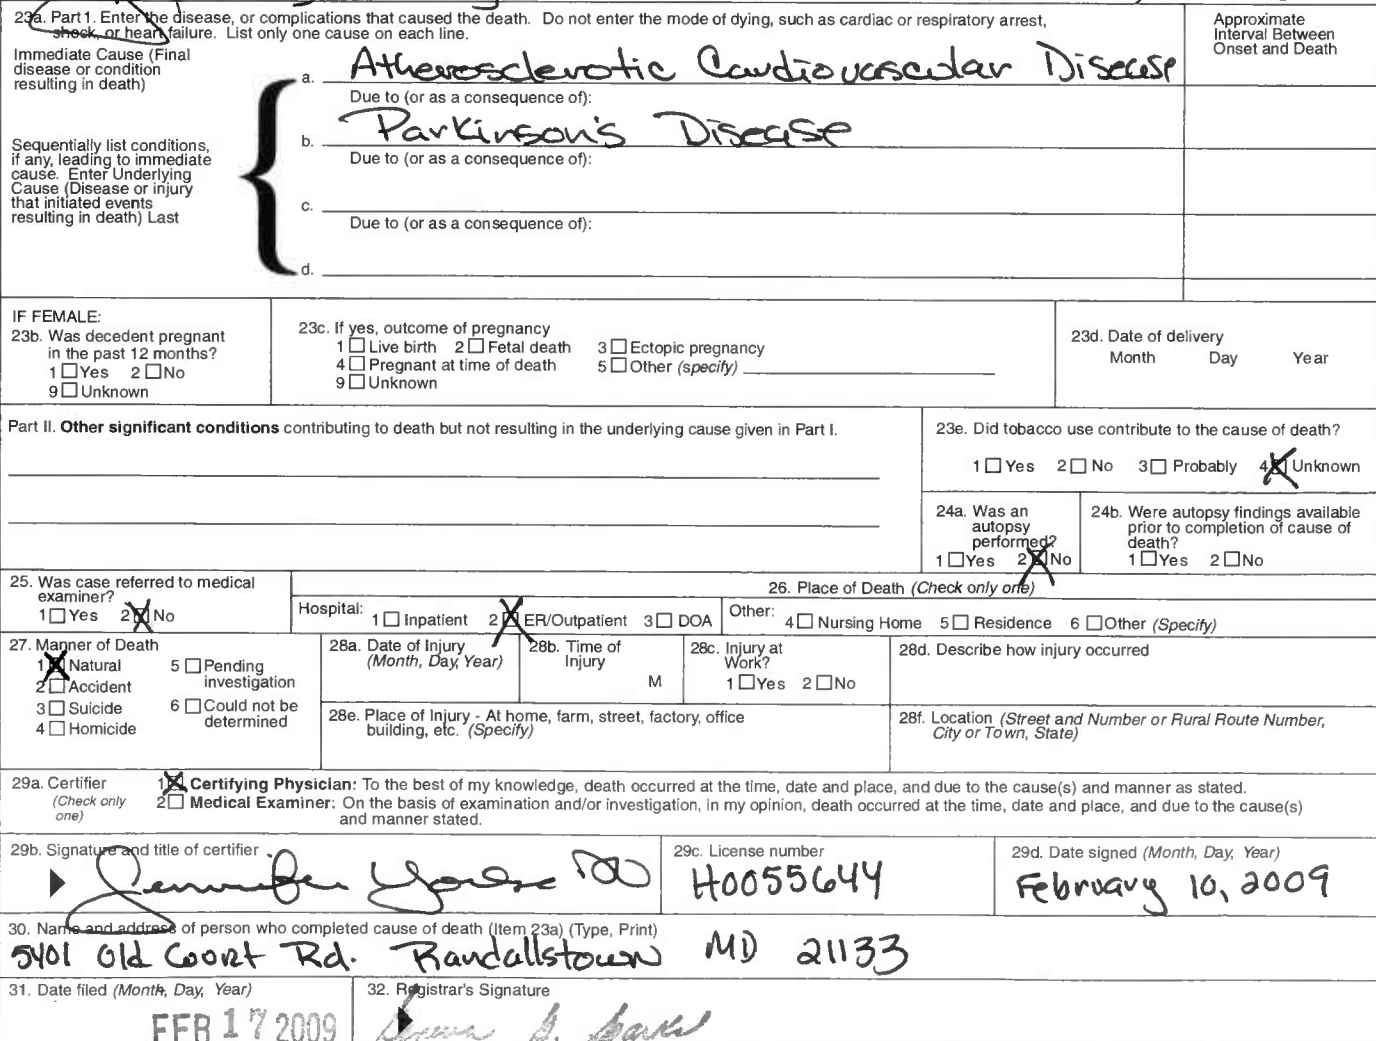 23a. Part 1. Enter the disease, or complications that caused the death. Do not enter the mode of dying, such as cardiac or respiratory arrest,
shock, or heart failure. List only one cause on each line.
Approximate
Interval Between
Onset and Death
Immediate Cause (Final
disease or condition
resulting in death)
a. Atherosclerotic Cardiovascular Disease
Due to (or as a consequence of):
b. Parkinson's Disease
Due to (or as a consequence of):
Sequentially list conditions,
if any, leading to immediate
cause. Enter Underlying
Cause (Disease or injury
that initiated events
resulting in death) Last
c.
Due to (or as a consequence of):
d.
IF FEMALE:
23b. Was decedent pregnant
in the past 12 months?
1 Yes 2 No
9 Unknown
23c. If yes, outcome of pregnancy
1 Live birth 2 Fetal death 3 Ectopic pregnancy
4 Pregnant at time of death 5 Other (specify)
9 Unknown
23d. Date of delivery
Month Day Year
Part II. Other significant conditions contributing to death but not resulting in the underlying cause given in Part I.
23e. Did tobacco use contribute to the cause of death?
1 Yes 2 No 3 Probably 4 Unknown
24a. Was an
autopsy
performed?
1 Yes 2 No
24b. Were autopsy findings available
prior to completion of cause of
death?
1 Yes 2 No
25. Was case referred to medical
examiner?
1 Yes 2 No
26. Place of Death (Check only one)
Hospital: 1 Inpatient 2 ER/Outpatient 3 DOA
Other: 4 Nursing Home 5 Residence 6 Other (Specify)
27. Manner of Death
1 Natural 5 Pending
investigation
2 Accident
3 Suicide 6 Could not be
determined
4 Homicide
28a. Date of Injury
(Month, Day, Year)
28b. Time of
Injury
M
28c. Injury at
Work?
1 Yes 2 No
28d. Describe how injury occurred
28e. Place of Injury - At home, farm, street, factory, office
building, etc. (Specify)
28f. Location (Street and Number or Rural Route Number,
City or Town, State)
29a. Certifier
(Check only
one)
1 Certifying Physician: To the best of my knowledge, death occurred at the time, date and place, and due to the cause(s) and manner as stated.
2 Medical Examiner: On the basis of examination and/or investigation, in my opinion, death occurred at the time, date and place, and due to the cause(s)
and manner stated.
29b. Signature and title of certifier
Jennifer
29c. License number
H0055644
29d. Date signed (Month, Day, Year)
February 10, 2009
30. Name and address of person who completed cause of death (Item 23a) (Type, Print)
5401 Old Court Rd. Randallstown MD 21133
31. Date filed (Month, Day, Year)
FEB 17 2009
32. Registrar's Signature